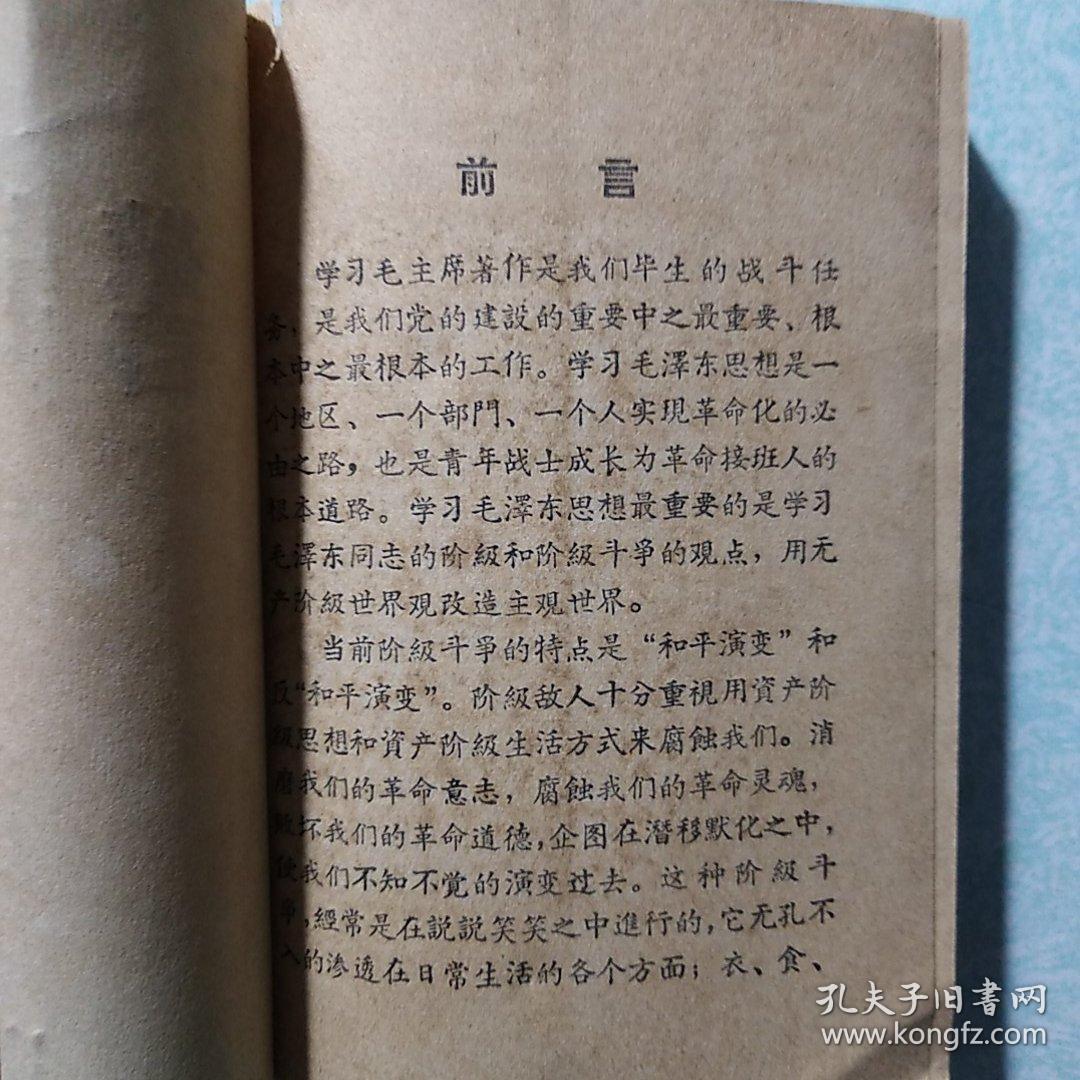 前 言
学习毛主席著作是我们毕生的战斗任
务,是我们党的建設的重要中之最重要、根
本中之最根本的工作。学习毛澤东思想是一
个地区、一个部門、一个人实現革命化的必
由之路,也是青年战士成长为革命接班人的
根本道路。学习毛澤东思想最重要的是学习
毛澤东同志的阶級和阶級斗爭的观点,用无
产阶級世界观改造主观世界。
当前阶級斗爭的特点是“和平演变”和
反“和平演变”。阶級敌人十分重視用資产阶
級思想和資产阶級生活方式来腐蝕我们。消
磨我们的革命意志,腐蝕我们的革命灵魂,
敗坏我们的革命道德,企图在潛移默化之中,
使我们不知不觉的演变过去。这种阶級斗
爭,經常是在説説笑笑之中進行的,它无孔不
入的渗透在日常生活的各个方面;衣、食、
孔夫子旧書网
www.kongfz.com